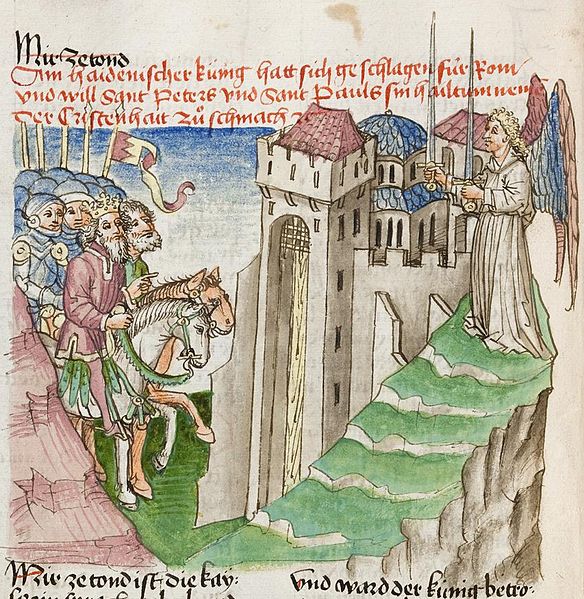 Mir ze tond
Ain haidenischer kúnig hatt sich geschlagen fúr Rom
Vnd will Sant Peters Vnd Sant Pauls sin haltum nem
Der Cristenhait zů schmach
Mir ze tond ist die kay:
Vnd ward der kúnig betro: